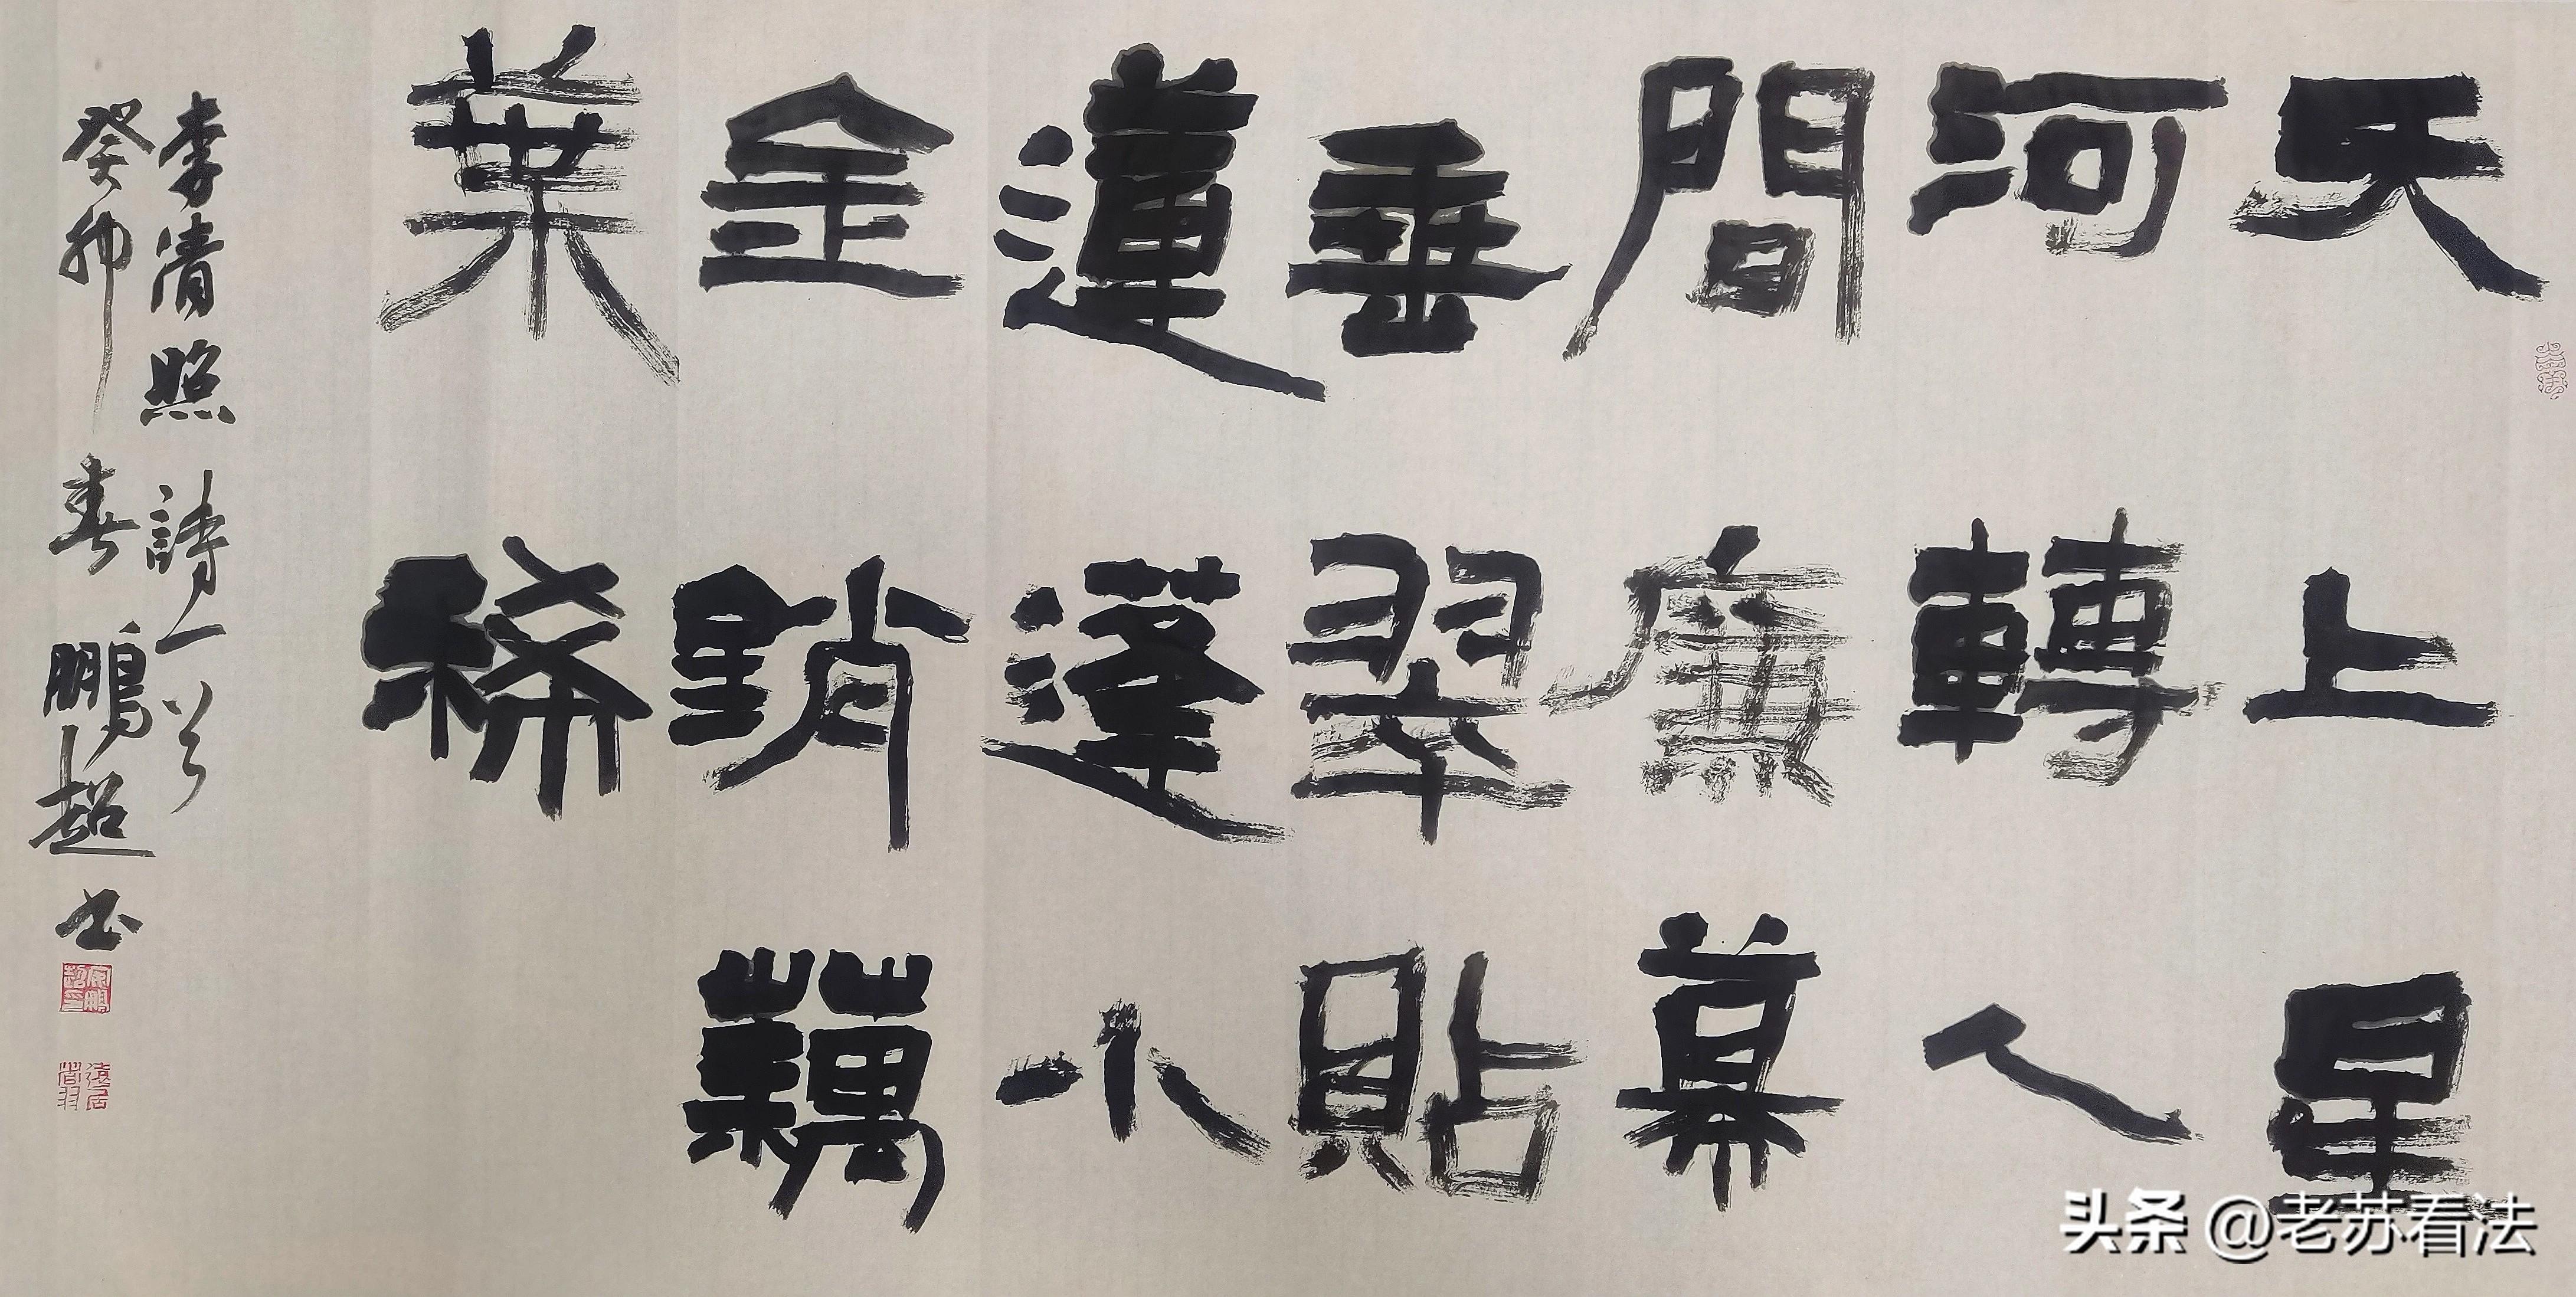 天上星
河轉人
間廉幕
垂翠貼
蓮蓬小
金銷藕
葉稀
李清照詩一首
癸卯春鵬超书
头条 @老苏看法